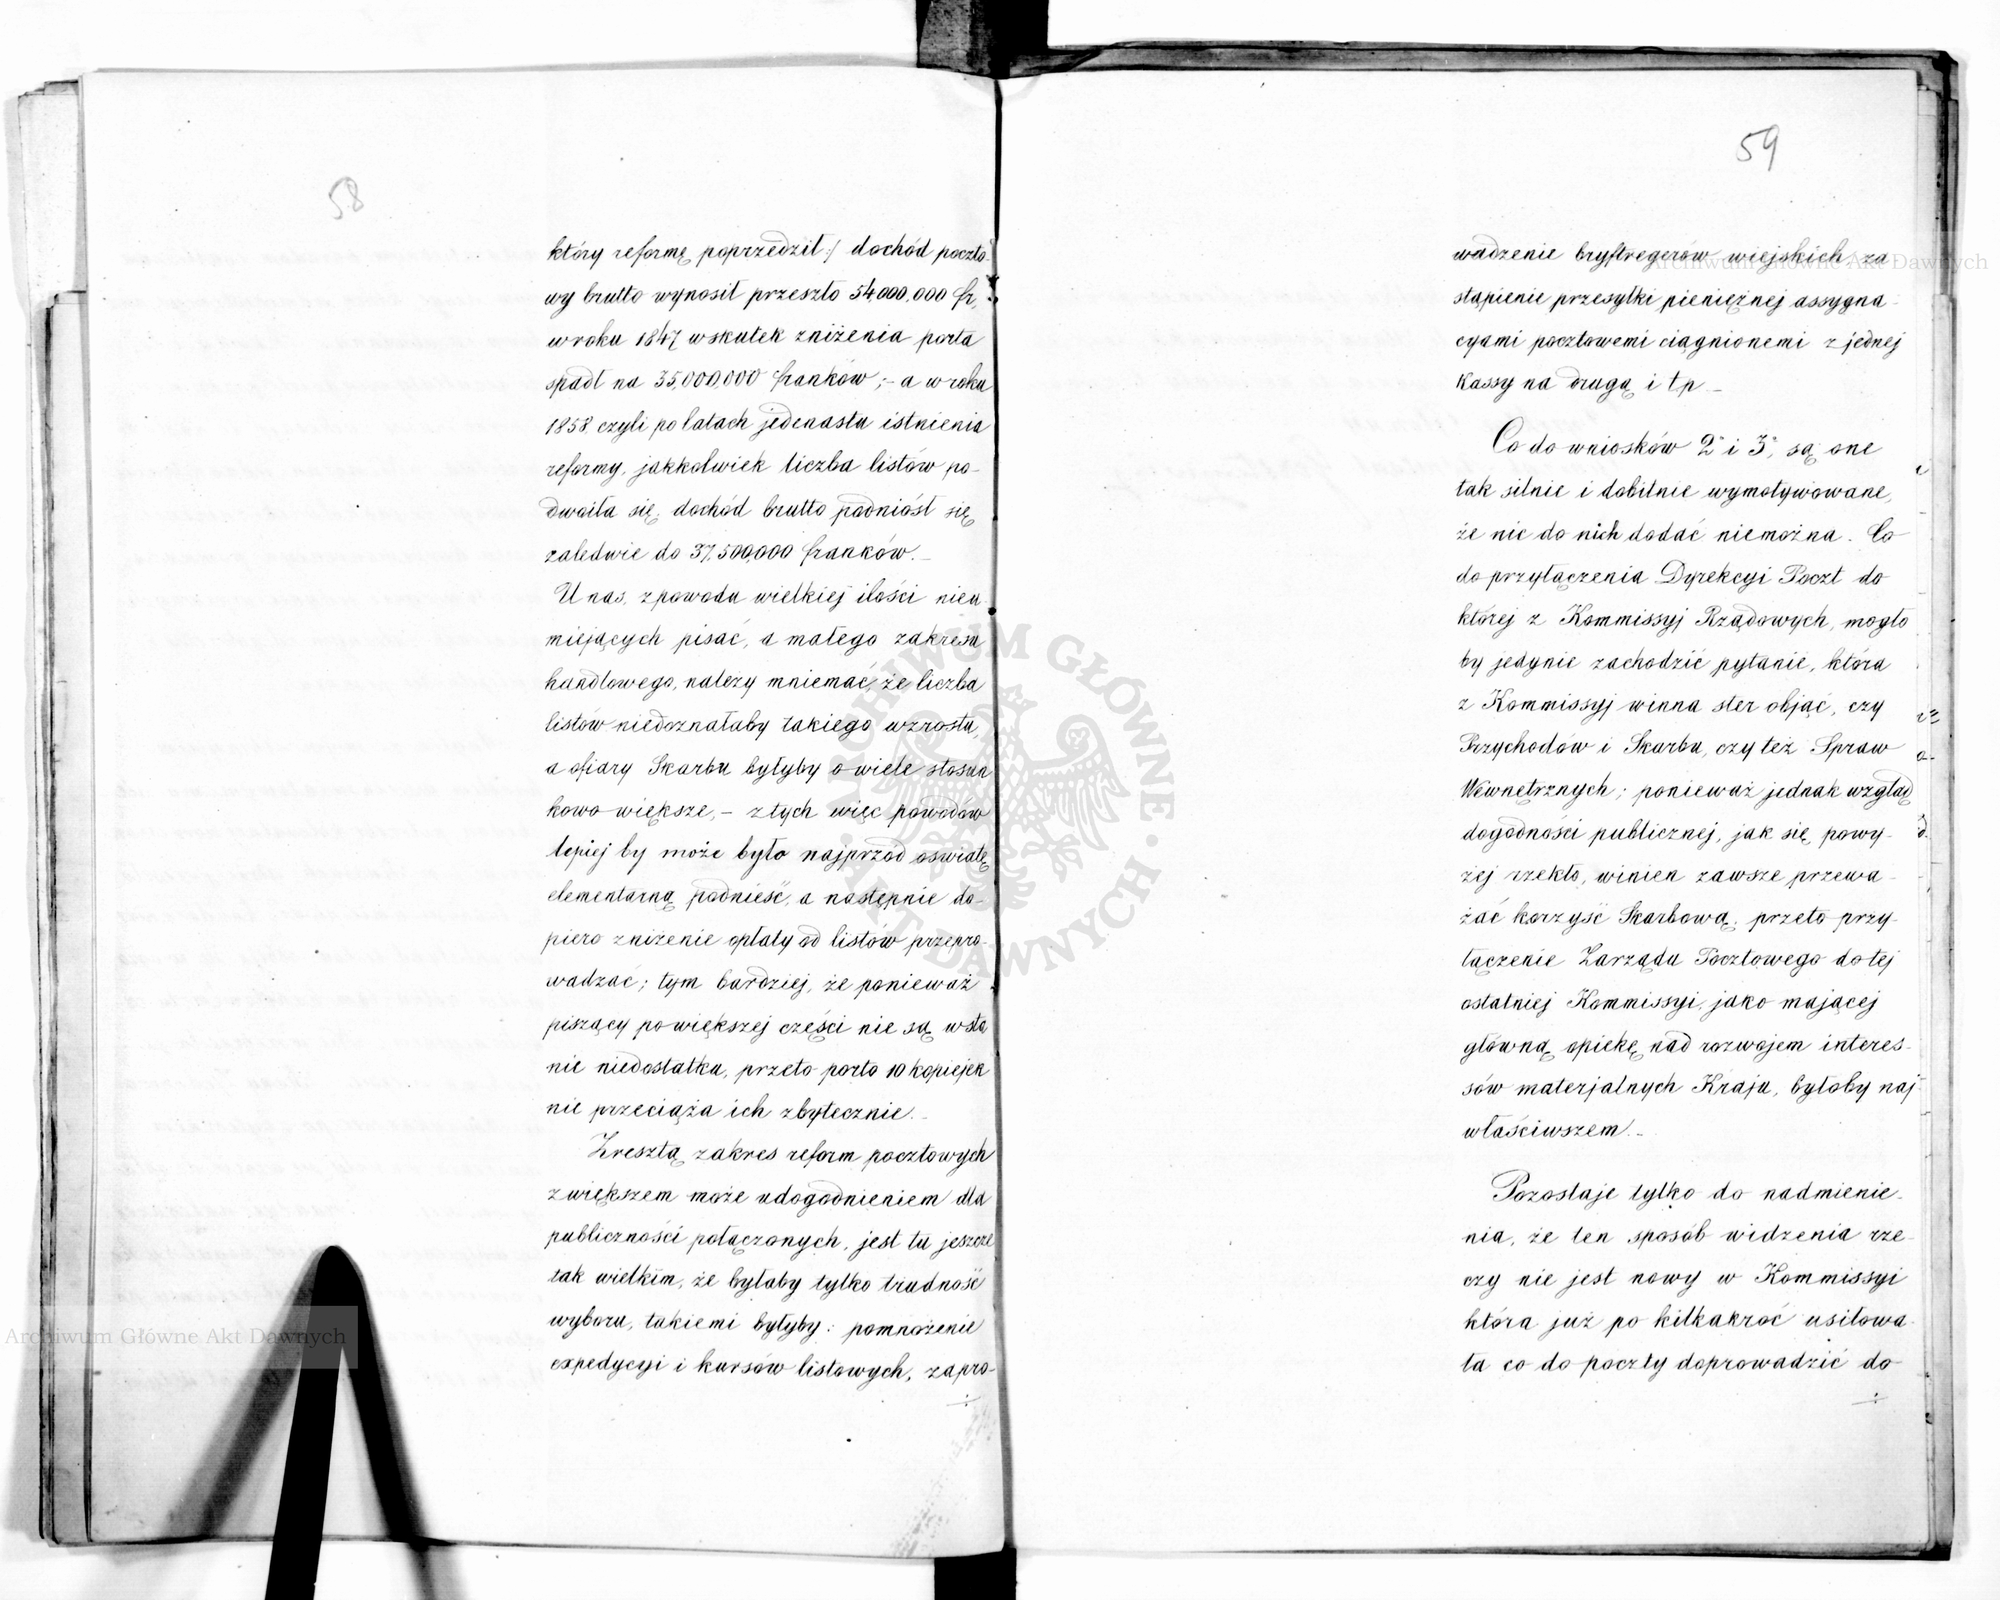 58
który reformę poprzedził:/ dochód poczto-
wy brutto wynosił przeszło 54,000,000 fr,
w roku 1847 wskutek zniżenia porta
spadł na 35,000,000 franków; - a w roku
1858 czyli po latach jedenastu istnienia
reformy, jakkolwiek liczba listów po-
dwoiła się, dochód brutto podniósł się
zaledwie do 37,500,000 franków. -
U nas, z powodu wielkiej ilości nieu-
miejących pisać, a małego zakresu
handlowego, należy mniemać, że liczba
listów niedoznałaby takiego wzrostu,
a ofiary Skarbu byłyby o wiele stosun
kowo większe, - z tych więc powodów
lepiej by może było najprzód oświatę
elementarną podnieść, a następnie do-
piero zniżenie opłaty od listów przepro-
wadzać; tym bardziej, że ponieważ
piszący po większej części nie są w sta
nie niedostatku, przeto porto 10 kopiejek
nie przeciąża ich zbytecznie. -
Zresztą zakres reform pocztowych
z większem może udogodnieniem dla
publiczności połączonych, jest tu jeszcze
tak wielkim, że byłaby tylko trudność
wyboru, takiemi byłyby: pomnożenie
expedycyi i kursów listowych, zapro-
59
wadzenie bryftregerów wiejskich, za
stąpienie przesyłki pieniężnej assygna-
cyami pocztowemi ciągnionemi z jednej
Kassy na drugą i t p -
Co do wniosków 2° i 3°, są one
tak silnie i dobitnie wymotywowane,
że nic do nich dodać niemożna. Co
do przyłączenia Dyrekcyi Poczt do
której z Kommissyj Rządowych, mogło
by jedynie zachodzić pytanie, która
z Kommissyj winna ster objąć, czy
Przychodów i Skarbu, czy też Spraw
Wewnętrznych; ponieważ jednak wzgląd
dogodności publicznej, jak się powy-
żej rzekło, winien zawsze przewa-
żać korzyść Skarbową, przeto przy-
łączenie Zarządu Pocztowego do tej
ostatniej Kommissyi, jako mającej
główną opiekę nad rozwojem interes-
sów materjalnych Kraju, byłoby naj-
właściwszem. -
Pozostaje tylko do nadmienie-
nia, że ten sposób widzenia rze-
czy nie jest nowy w Kommissyi
która już po kilkakroć usiłowa-
ła co do poczty doprowadzić do
Archiwum Główne Akt Dawnych
Archiwum Główne Akt Dawnych
ARCHIWUM GŁÓWNE AKT DAWNYCH